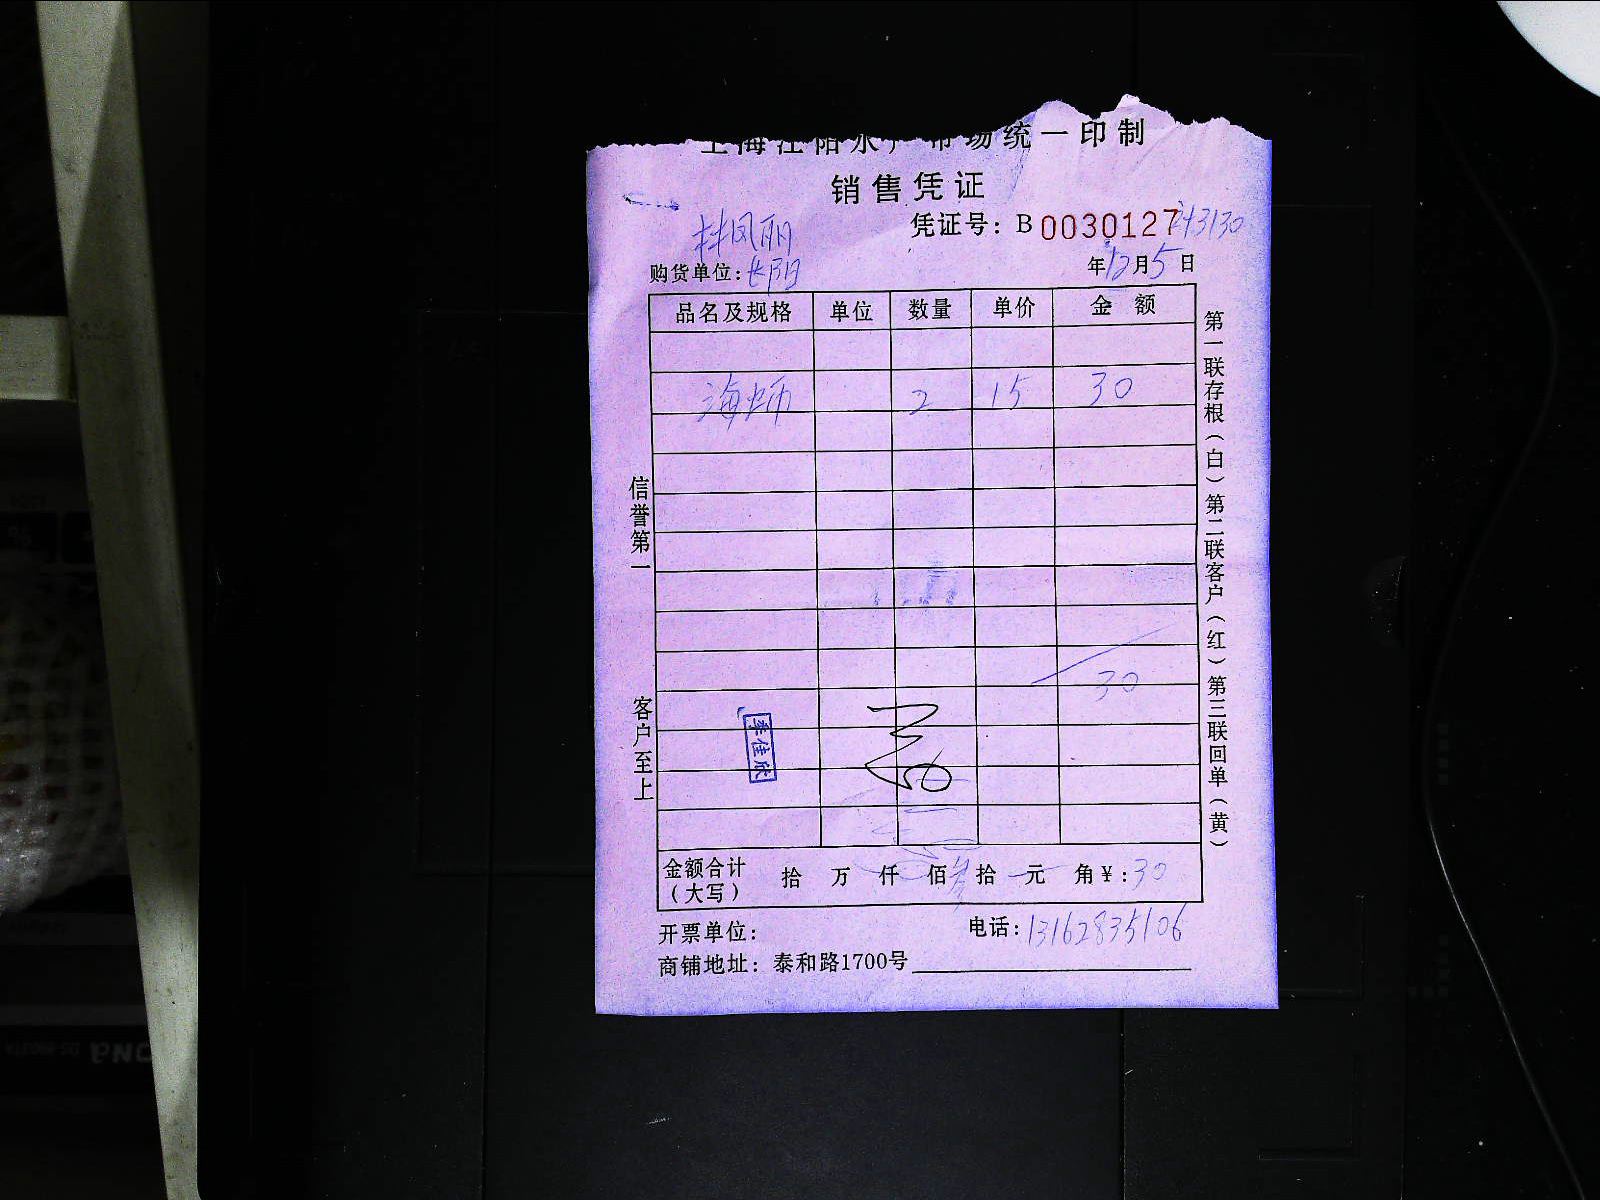 上海江阳水产市场统一印制
销售凭证
林凤丽
凭证号：B 0030127
购货单位：长阳
年12月5日
品名及规格 单位 数量 单价 金 额
海蛳 2 15 30
30
信誉第一
客户至上
季佳欣
第一联存根（白）第二联客户（红）第三联回单（黄）
金额合计（大写） 拾 万 仟 佰 叁拾 元 角 ¥：30
开票单位：
电话：13162835106
商铺地址：泰和路1700号